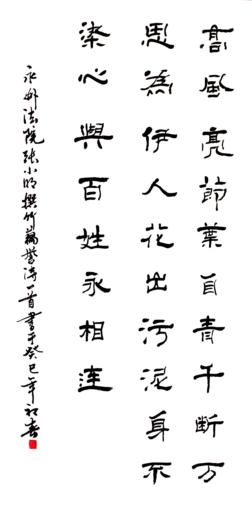 高風亮節葉自青千断万
思為伊人花出污泥身不
染心與百姓永相連
永州法院張小明撰竹藕赞诗一首書于癸巳年初春